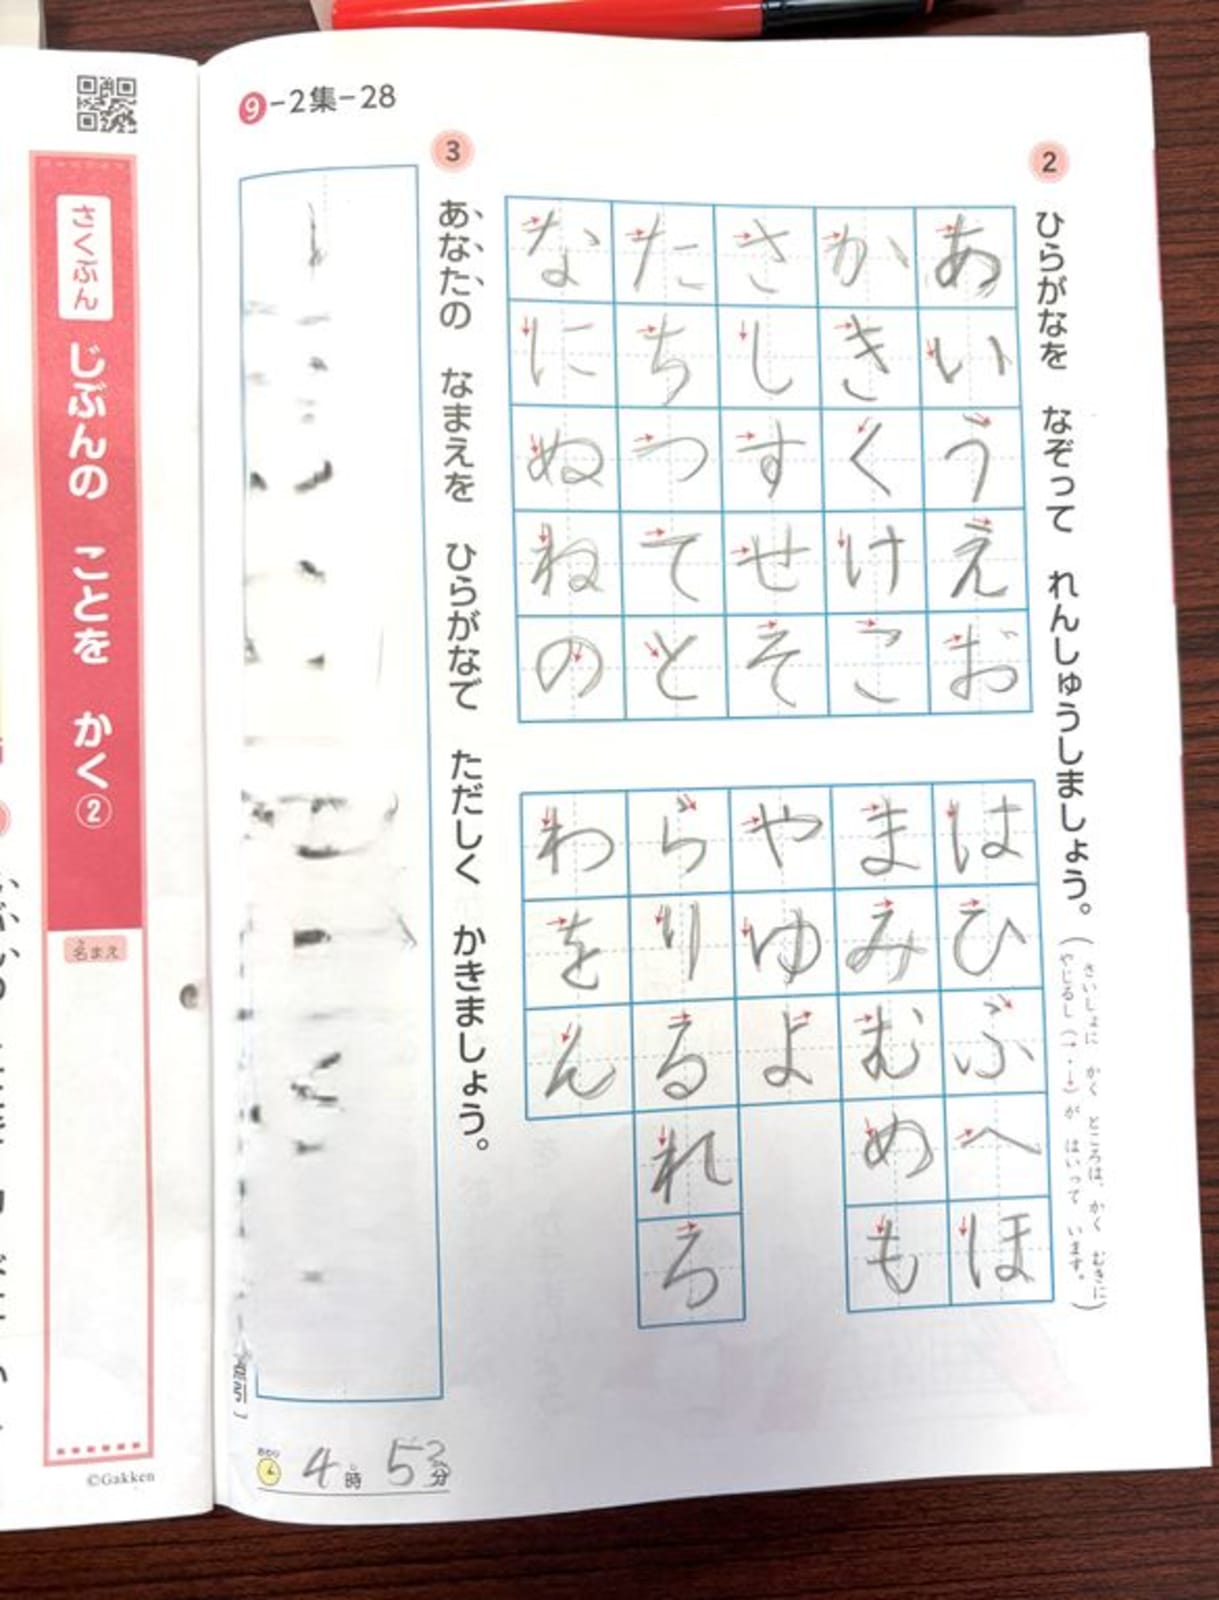 9-2集-28
2
ひらがなを なぞって れんしゅうしましょう。
(さいしょに かく ところは、かく むきに
やじるし(→・↓)が はいって います。)
あいうえお
かきくけこ
さしすせそ
たちつてと
なにぬねの
はひふへほ
まみむめも
やゆよ
らりるれろ
わをん
3
あなたの なまえを ひらがなで ただしく かきましょう。
おわり
4時 53分
さくぶん
じぶんの ことを かく②
名まえ
©Gakken